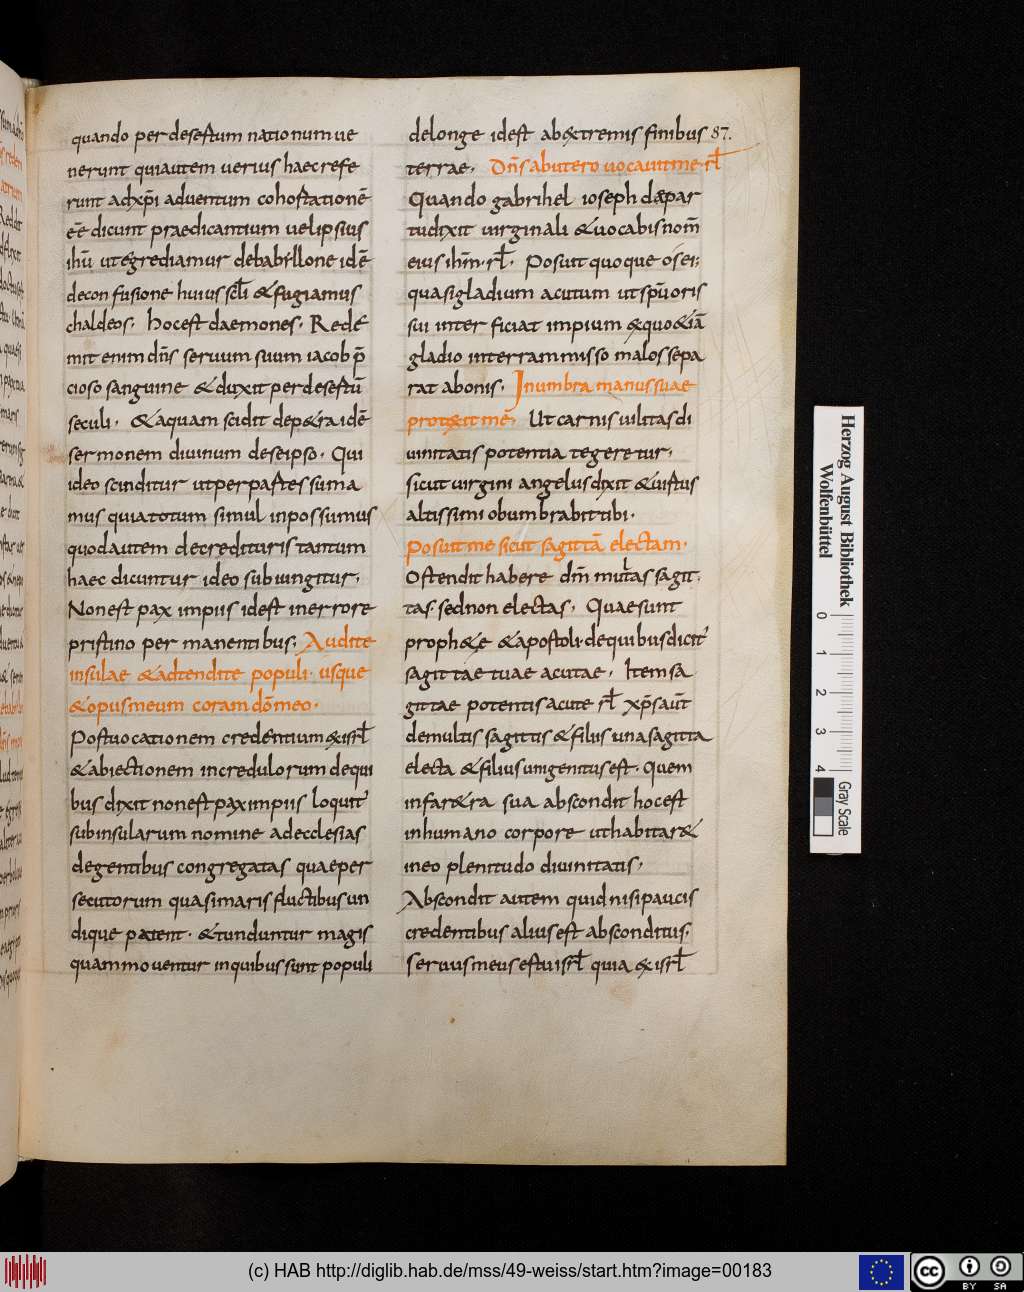 quando per desertum nationum ue
nerunt qui autem uerius haec refe
runt ad xp̄i aduentum cohortationē
eē dicunt praedicantium uel ipsius
ihū ut egrediamur de babillone idē
de confusione huius scłi & fugiamus
chaldeos. hoc est daemones. Rede
mit enim dn̄s seruum suum iacob p̄
cioso sanguine & duxit per desertū
seculi. & aquam scidit de p&ra idē
sermonem diuinum de se ipso. Qui
ideo scinditur ut per partes suma
mus quia totum simul in possumus
quod autem de credituris tantum
haec dicuntur ideo subiungitur.
Non est pax impiis id est in errore
pristino permanentibus; Audite
insulae & adtendite populi. usque
& opus meum coram dō meo.
Post uocationem credentium ex isrł
& abiectionem incredulorum de qui
bus dixit non est pax impiis loquit'
sub insularum nomine ad ecclesias
degentibus congregatas quae per
secutorum quasi maris fluctibus un
dique patent. & tunduntur magis
quam mouentur in quibus sunt populi
de longe id est ab extremis finibus 87.
terrae. Dn̄s ab utero uocauit me. rł
Quando gabrihel ioseph de par
tu dixit uirginali & uocabis nom̄
eius ihm̄. rł. Posuit quoque os ei;
quasi gladium acutum ut sp̄u oris
sui interficiat impium ex quo &iā
gladio in terram misso malos sepa
rat a bonis. In umbra manus suae
protexit mē. Ut carnis uilitas di
uinitatis potentia tegeretur.
sicut uirgini angelus dixit & uirtus
altissimi obumbrabit tibi.
Posuit me sicut sagittā electam.
Ostendit habere dm̄ multas sagit.
tas. sed non electas. Quae sunt
proph&e & apostoli. de quibus dicit'
sagittae tuae acutae. Item sa
gittae potentis acute rł xp̄s aut̄
de multis sagittis & filiis una sagitta
electa & filius unigenitus est. Quem
in far&ra sua abscondit hoc est
in humano corpore ut habitar&
in eo plenitudo diuinitatis.
Abscondit autem quid nisi paucis
credentibus alius est absconditus.
Seruus meus es tu isrł quia ex isrł
Herzog August Bibliothek
Wolfenbüttel
0 1 2 3 4
Gray Scale
(c) HAB http://diglib.hab.de/mss/49-weiss/start.htm?image=00183
cc BY SA